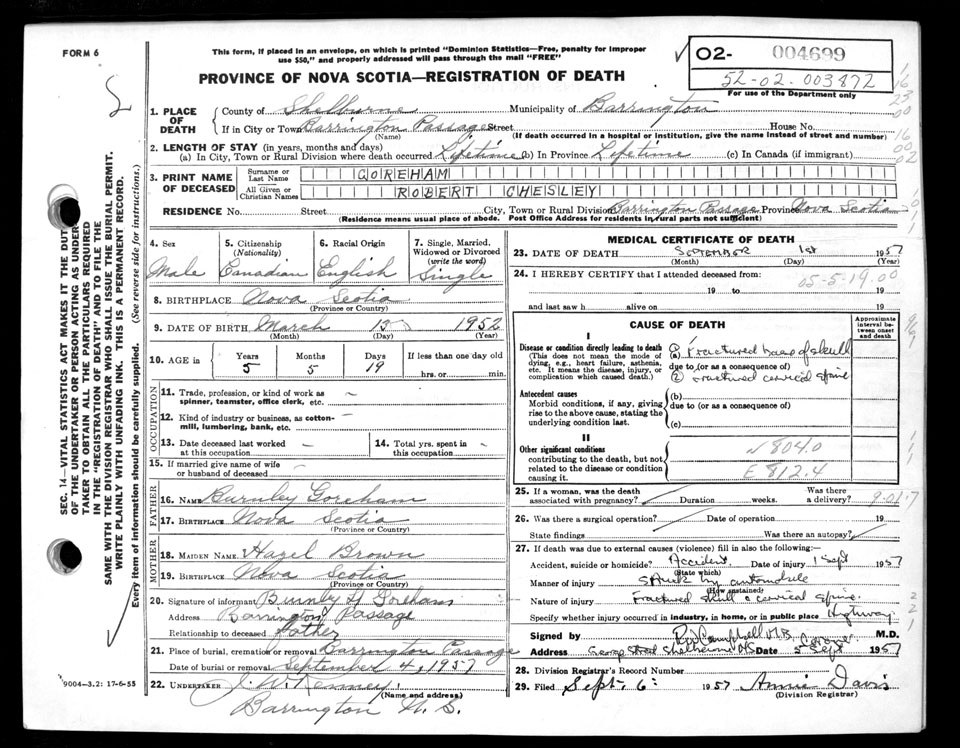 FORM 6
This form, if placed in an envelope, on which is printed "Dominion Statistics—Free, penalty for improper
use $50," and properly addressed will pass through the mail "FREE"
PROVINCE OF NOVA SCOTIA—REGISTRATION OF DEATH
02- 004699
52-02-003872
For use of the Department only
1. PLACE OF DEATH
County of Shelburne Municipality of Barrington
If in City or Town Barrington Passage Street House No.
(Name) (If death occurred in a hospital or institution, give the name instead of street and number)
2. LENGTH OF STAY (in years, months and days)
(a) In City, Town or Rural Division where death occurred Lifetime (b) In Province Lifetime (c) In Canada (if immigrant)
3. PRINT NAME OF DECEASED
Surname or Last Name GOREHAM
All Given or Christian Names ROBERT CHESLEY
RESIDENCE No. Street City, Town or Rural Division Barrington Passage Province Nova Scotia
(Residence means usual place of abode. Post Office Address for residents in rural parts not sufficient)
4. Sex
Male
5. Citizenship (Nationality)
Canadian
6. Racial Origin
English
7. Single, Married, Widowed or Divorced (write the word)
Single
8. BIRTHPLACE Nova Scotia
(Province or Country)
9. DATE OF BIRTH March 13 1952
(Month) (Day) (Year)
10. AGE in Years Months Days If less than one day old
5 5 19 hrs. or min.
OCCUPATION
11. Trade, profession, or kind of work as spinner, teamster, office clerk, etc. —
12. Kind of industry or business, as cotton-mill, lumbering, bank, etc. —
13. Date deceased last worked at this occupation —
14. Total yrs. spent in this occupation —
15. If married give name of wife or husband of deceased —
FATHER
16. NAME Burnley Goreham
17. BIRTHPLACE Nova Scotia
(Province or Country)
MOTHER
18. MAIDEN NAME Hazel Brown
19. BIRTHPLACE Nova Scotia
(Province or Country)
20. Signature of informant Burnley H Goreham
Address Barrington Passage
Relationship to deceased Father
21. Place of burial, cremation or removal Barrington Passage
Date of burial or removal September 4, 1957
22. UNDERTAKER J. W. Kenney
(Name and address)
Barrington N. S.
MEDICAL CERTIFICATE OF DEATH
23. DATE OF DEATH SEPTEMBER 1st 1957
(Month) (Day) (Year)
24. I HEREBY CERTIFY that I attended deceased from:
05-5-19.00
19 to 19
and last saw h alive on 19
CAUSE OF DEATH
Approximate interval between onset and death
Disease or condition directly leading to death
(This does not mean the mode of dying, e.g., heart failure, asthenia, etc. It means the disease, injury, or complication which caused death.)
(a) ① Fractured base of skull
due to (or as a consequence of)
② Fractured cervical spine
Antecedent causes
Morbid conditions, if any, giving rise to the above cause, stating the underlying condition last.
(b)
due to (or as a consequence of)
(c)
II
Other significant conditions contributing to the death, but not related to the disease or condition causing it.
N 804.0
E 812.4
25. If a woman, was the death associated with pregnancy? Duration weeks. Was there a delivery?
9-01-7
26. Was there a surgical operation? Date of operation 19
State findings Was there an autopsy?
27. If death was due to external causes (violence) fill in also the following:—
Accident, suicide or homicide? Accident Date of injury 1 Sept 1957
(State which)
Manner of injury Struck by automobile
(How sustained)
Nature of injury Fractured skull & cervical spine
Specify whether injury occurred in industry, in home, or in public place Highway
Signed by Campbell M.D. Coroner M.D.
Address George Street Shelburne NS Date 5 Sept 1957
28. Division Registrar's Record Number
29. Filed Sept. 6: 1957 Annie Davis
(Division Registrar)
SEC. 14—VITAL STATISTICS ACT MAKES IT THE DUTY
OF THE UNDERTAKER OR PERSON ACTING AS UNDER-
TAKER TO OBTAIN ALL THE PARTICULARS REQUIRED
IN THE "REGISTRATION OF DEATH" AND TO FILE THE
SAME WITH THE DIVISION REGISTRAR WHO SHALL ISSUE THE BURIAL PERMIT.
WRITE PLAINLY WITH UNFADING INK. THIS IS A PERMANENT RECORD.
Every item of information should be carefully supplied. (See reverse side for instructions.)
9004-3.2: 17-6-55